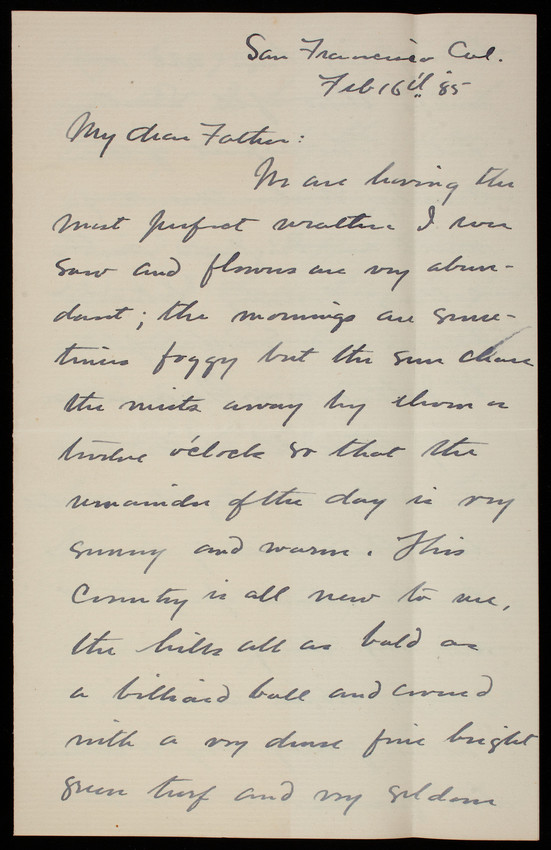 San Francisco Cal.
Feb 16th "85
My dear Father:
We are having the
most perfect weather I ever
saw and flowers are very abun-
dant; the mornings are some-
times foggy but the sun clears
the mists away by eleven or
twelve o'clock so that the
remainder of the day is very
sunny and warm. This
Country is all new to me,
the hills all as bald as
a billiard ball and covered
with a very dense fine bright
green turf and very seldom